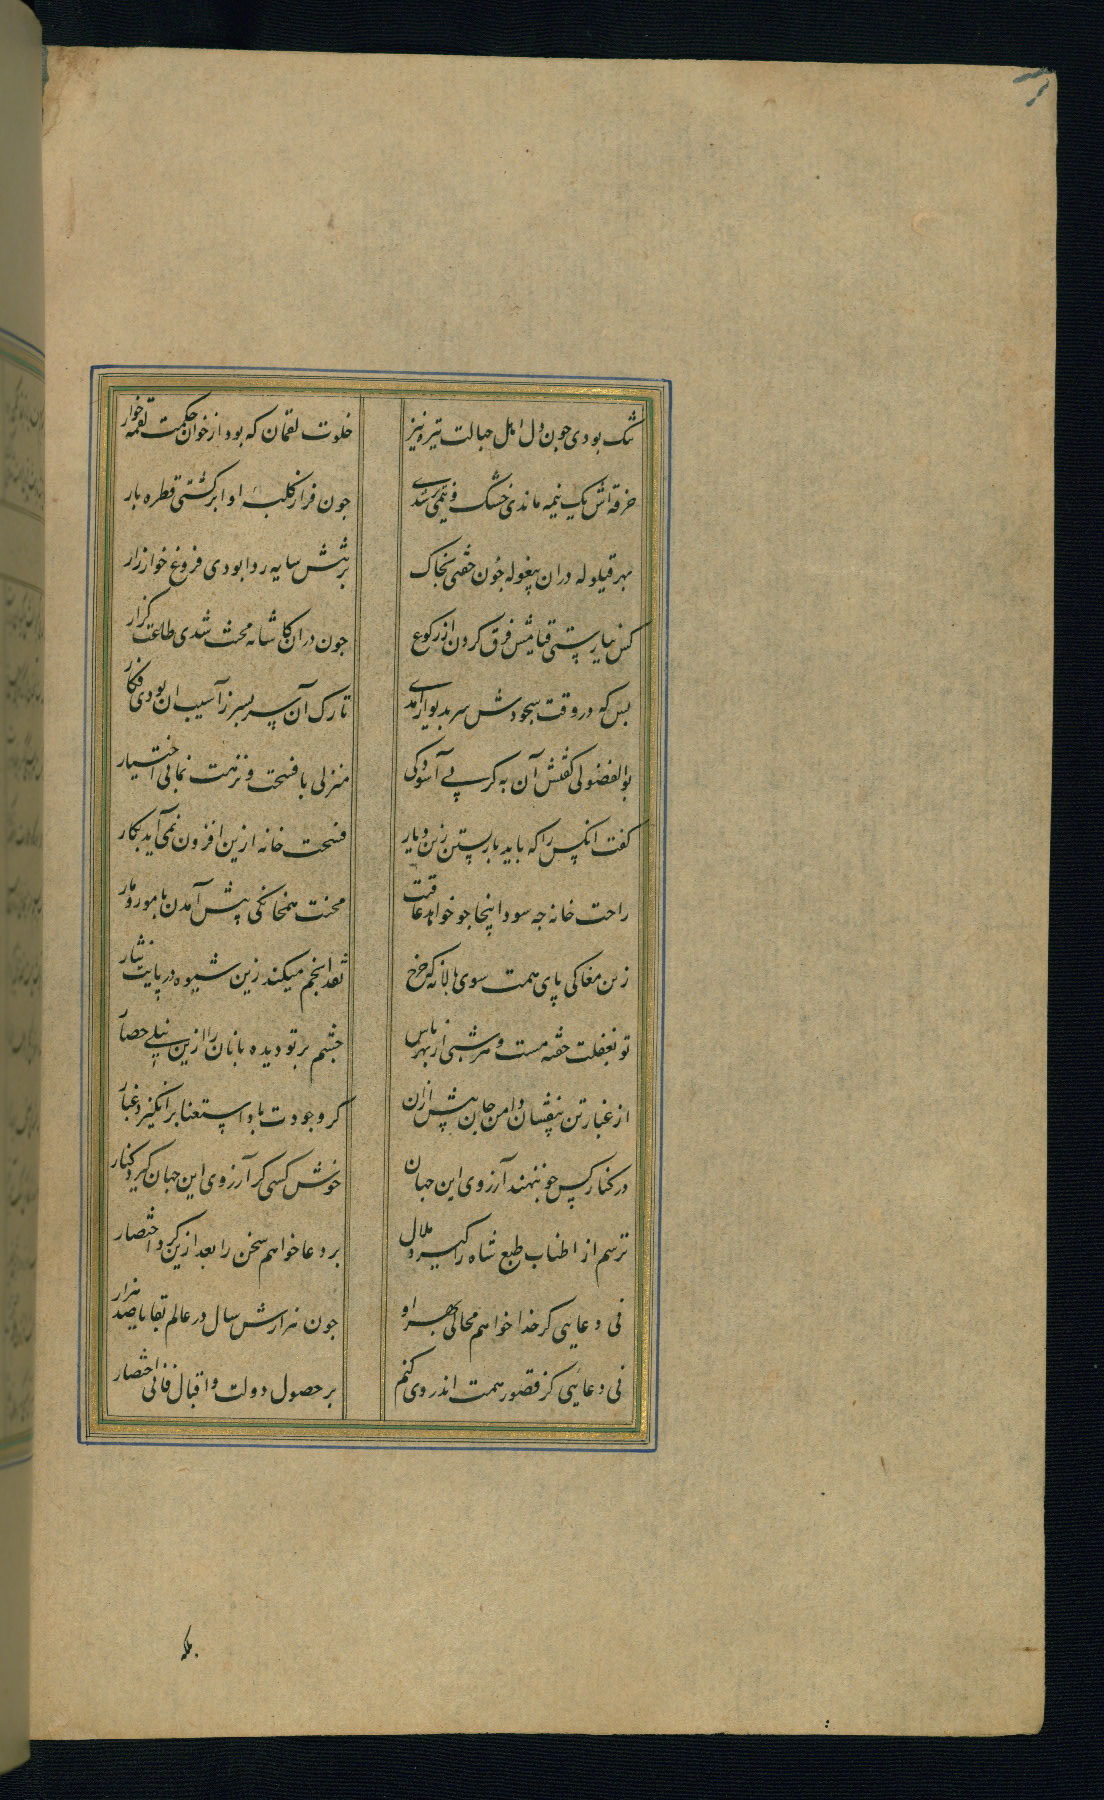 تنک بودی چون دل اهل جهالت تیره نیز
خلوت لقمان که بود از خوان حکمت لقمه خوار
خرقه اش یک نیمه ماندی خشک و نیمی تر شدی
چون فراز کلبهٔ او ابر کشتی قطره بار
بهر قیلوله دران پیغوله چون خفتی بخاک
بر تنش سایه ردا بودی فروغ خور ازار
کس نیارستی قیامش فرق کردن از رکوع
چون دران کاشانه محنت شدی طاعت گزار
بس که در وقت سجودش سر بدیوار آمدی
تارک آن سر بسر ز آسیب ان بودی فکار
بوالفضولی گفتش آن به کز پی آسودگی
منزلی با فسحت و نزهت نمایی اختیار
گفت انکس را که باید بار بستن زین دیار
فسحت خانه ازین افزون نمی آید بکار
راحت خانه چه سود اینجا چو خواهد عاقبت
محنت همخانگی پیش آمدن با مور و مار
زین مغاکی پای همت سوی بالا نه که چرخ
نقد انجم میکند زین شیوه در پایت نثار
تو بغفلت خفته مست و هر شبی از بهر پاس
چشم بر تو دیده بانان را ازین نیلی حصار
از غبار تن بیفشان دامن جان پیش ازان
کز وجودت باد استغنا برانگیزد غبار
در کنار کس چو ننهند آرزوی این جهان
خوش کسی کز آرزوی این جهان گیرد کنار
ترسم از اطناب طبع شاه را گیرد ملال
بر دعا خواهم سخن را بعد ازین کرد اختصار
نی دعایی کز خدا خواهم محالی بهر او
چون هزارش سال در عالم بقا یا صد هزار
نی دعایی کز قصور همت اندر وی کنم
بر حصول دولت و اقبال فانی اختصار
بلکه